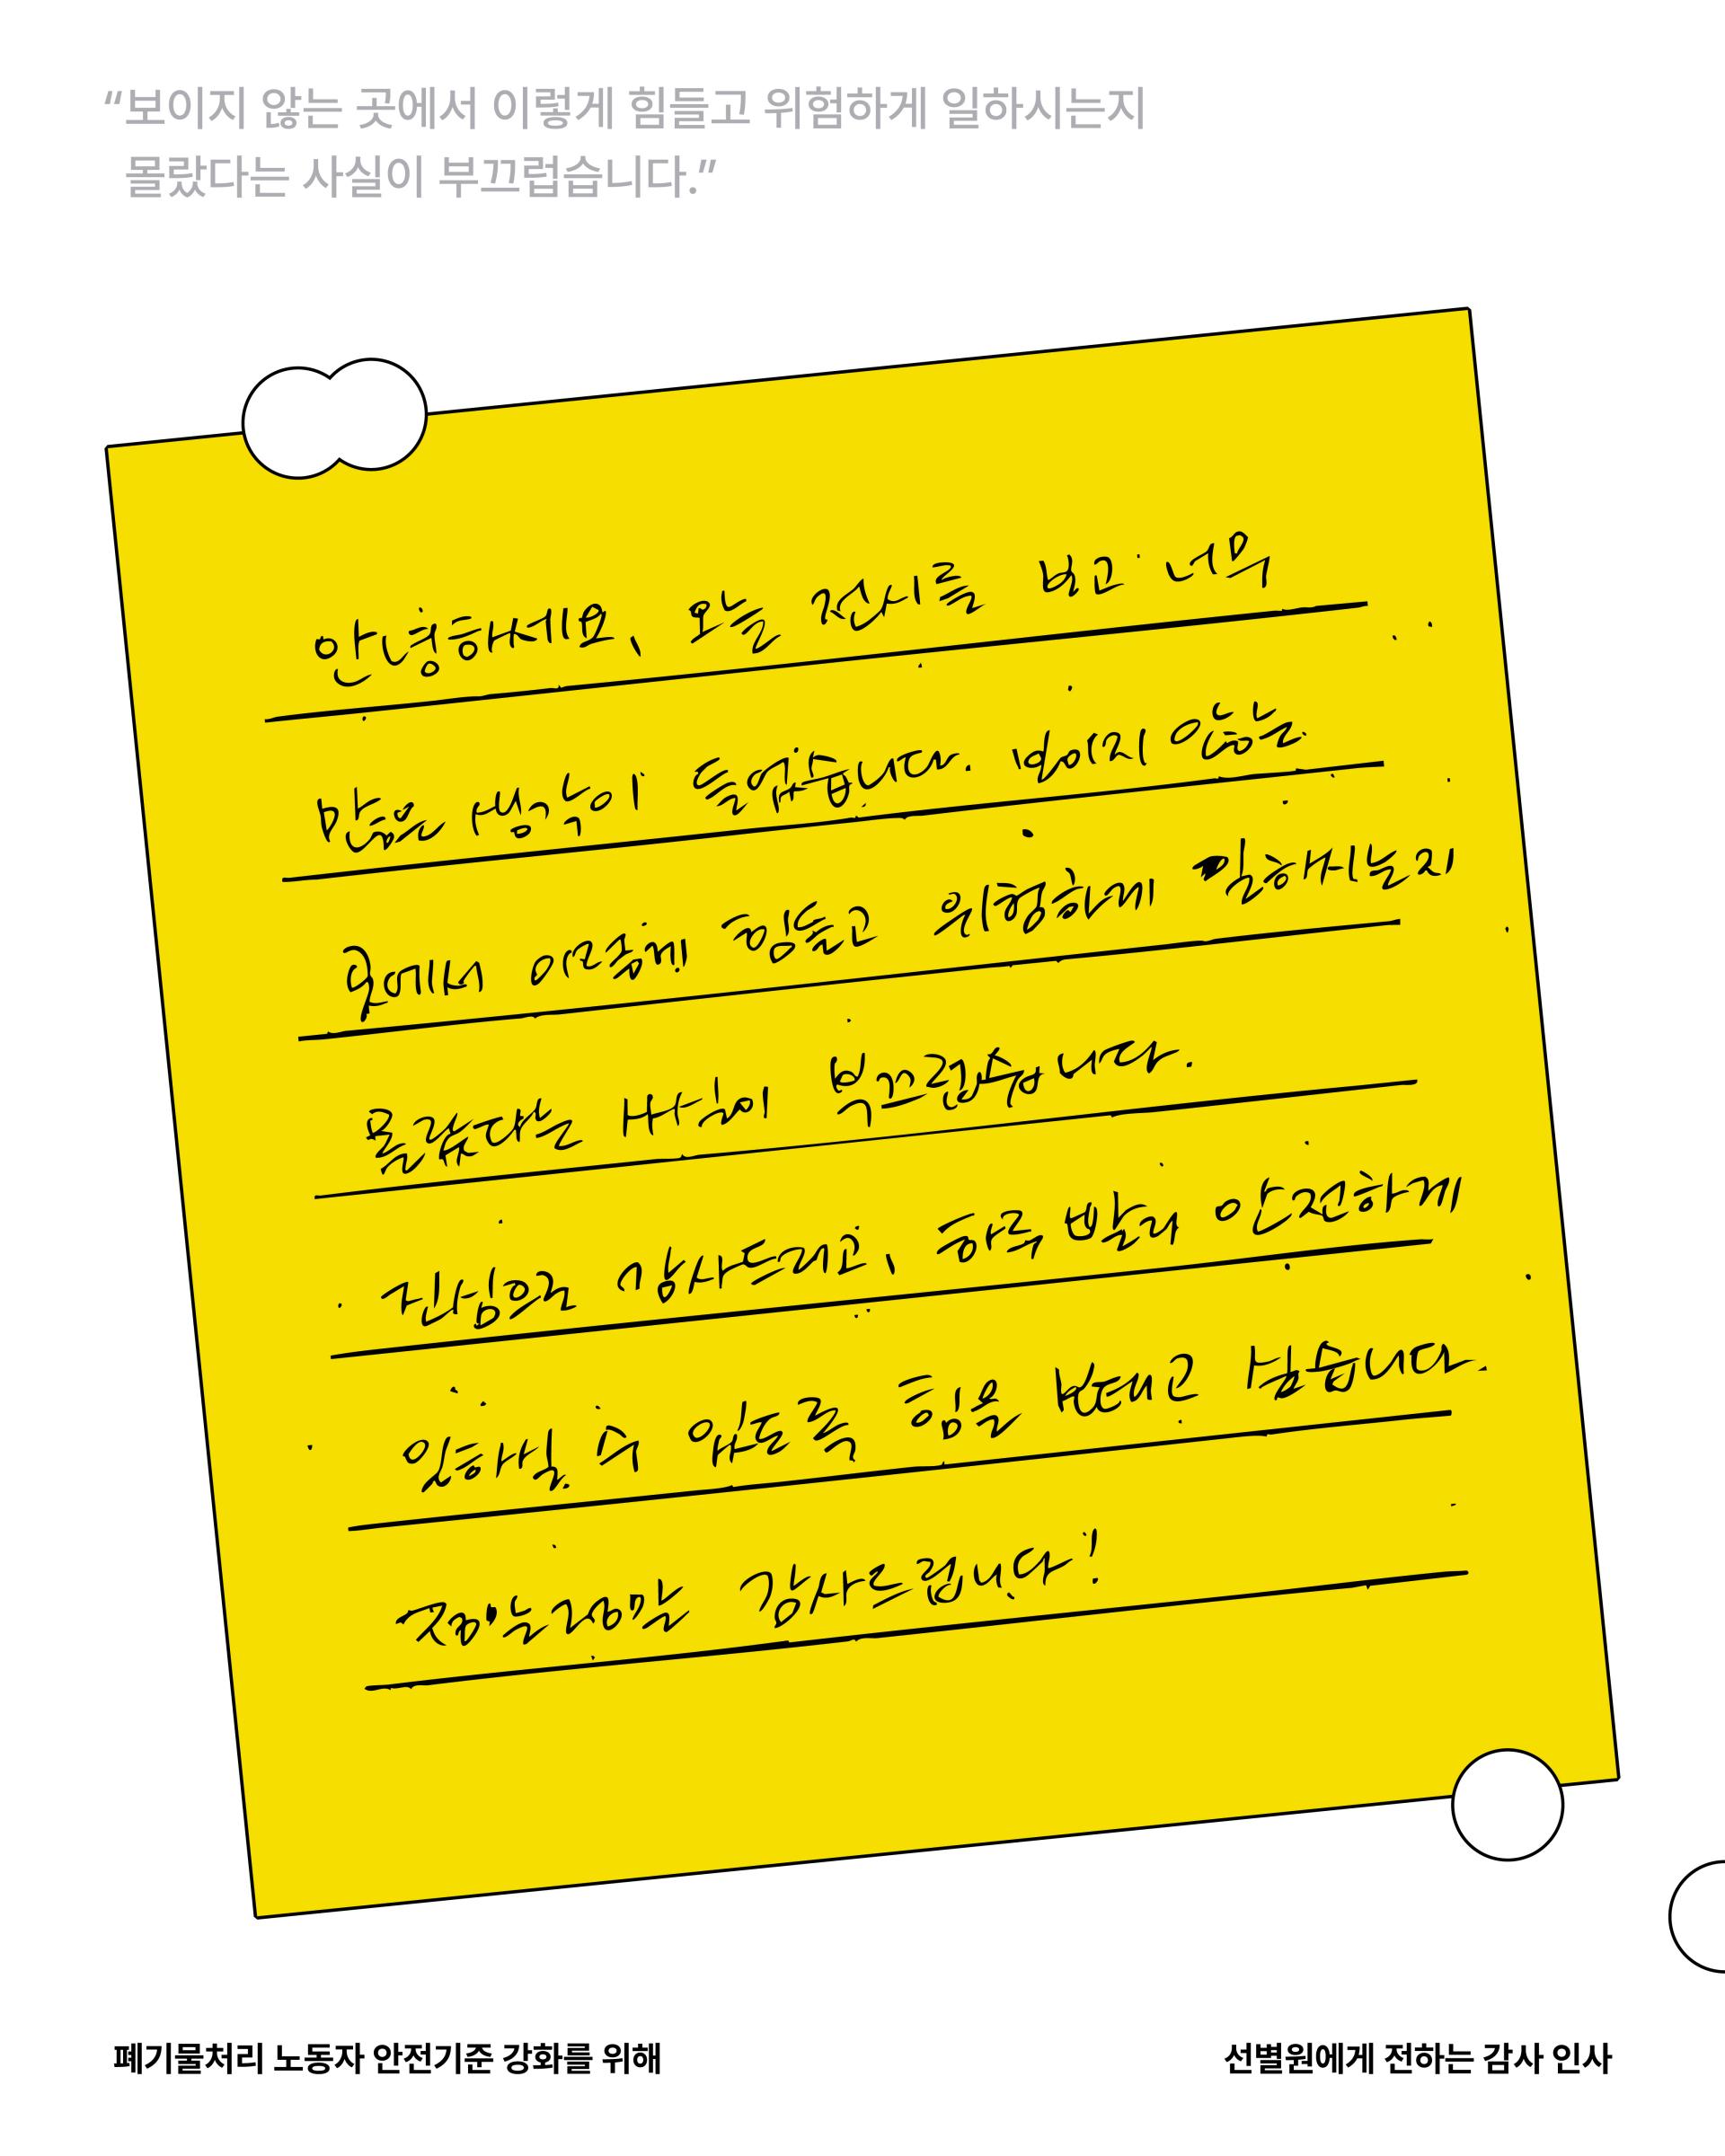 “보이지 않는 곳에서 이렇게 힘들고 위험하게 일하시는지
몰랐다는 사실이 부끄럽습니다.”
안녕하세요, 오늘 전시를 보고 너무
많은 생각이 들었습니다. 보이지 않는
곳에서 이렇게 힘들고 위험하게 일하시는지
몰랐다는 사실이 부끄럽습니다.
진심으로 감사드리고, 하루 빨리 안전하게
일하실 수 있도록 힘을 보태고 싶습니다.
정말 감사드립니다!
폐기물처리 노동자 안전기준 강화를 위해
선별원에게 전하는 감사 인사